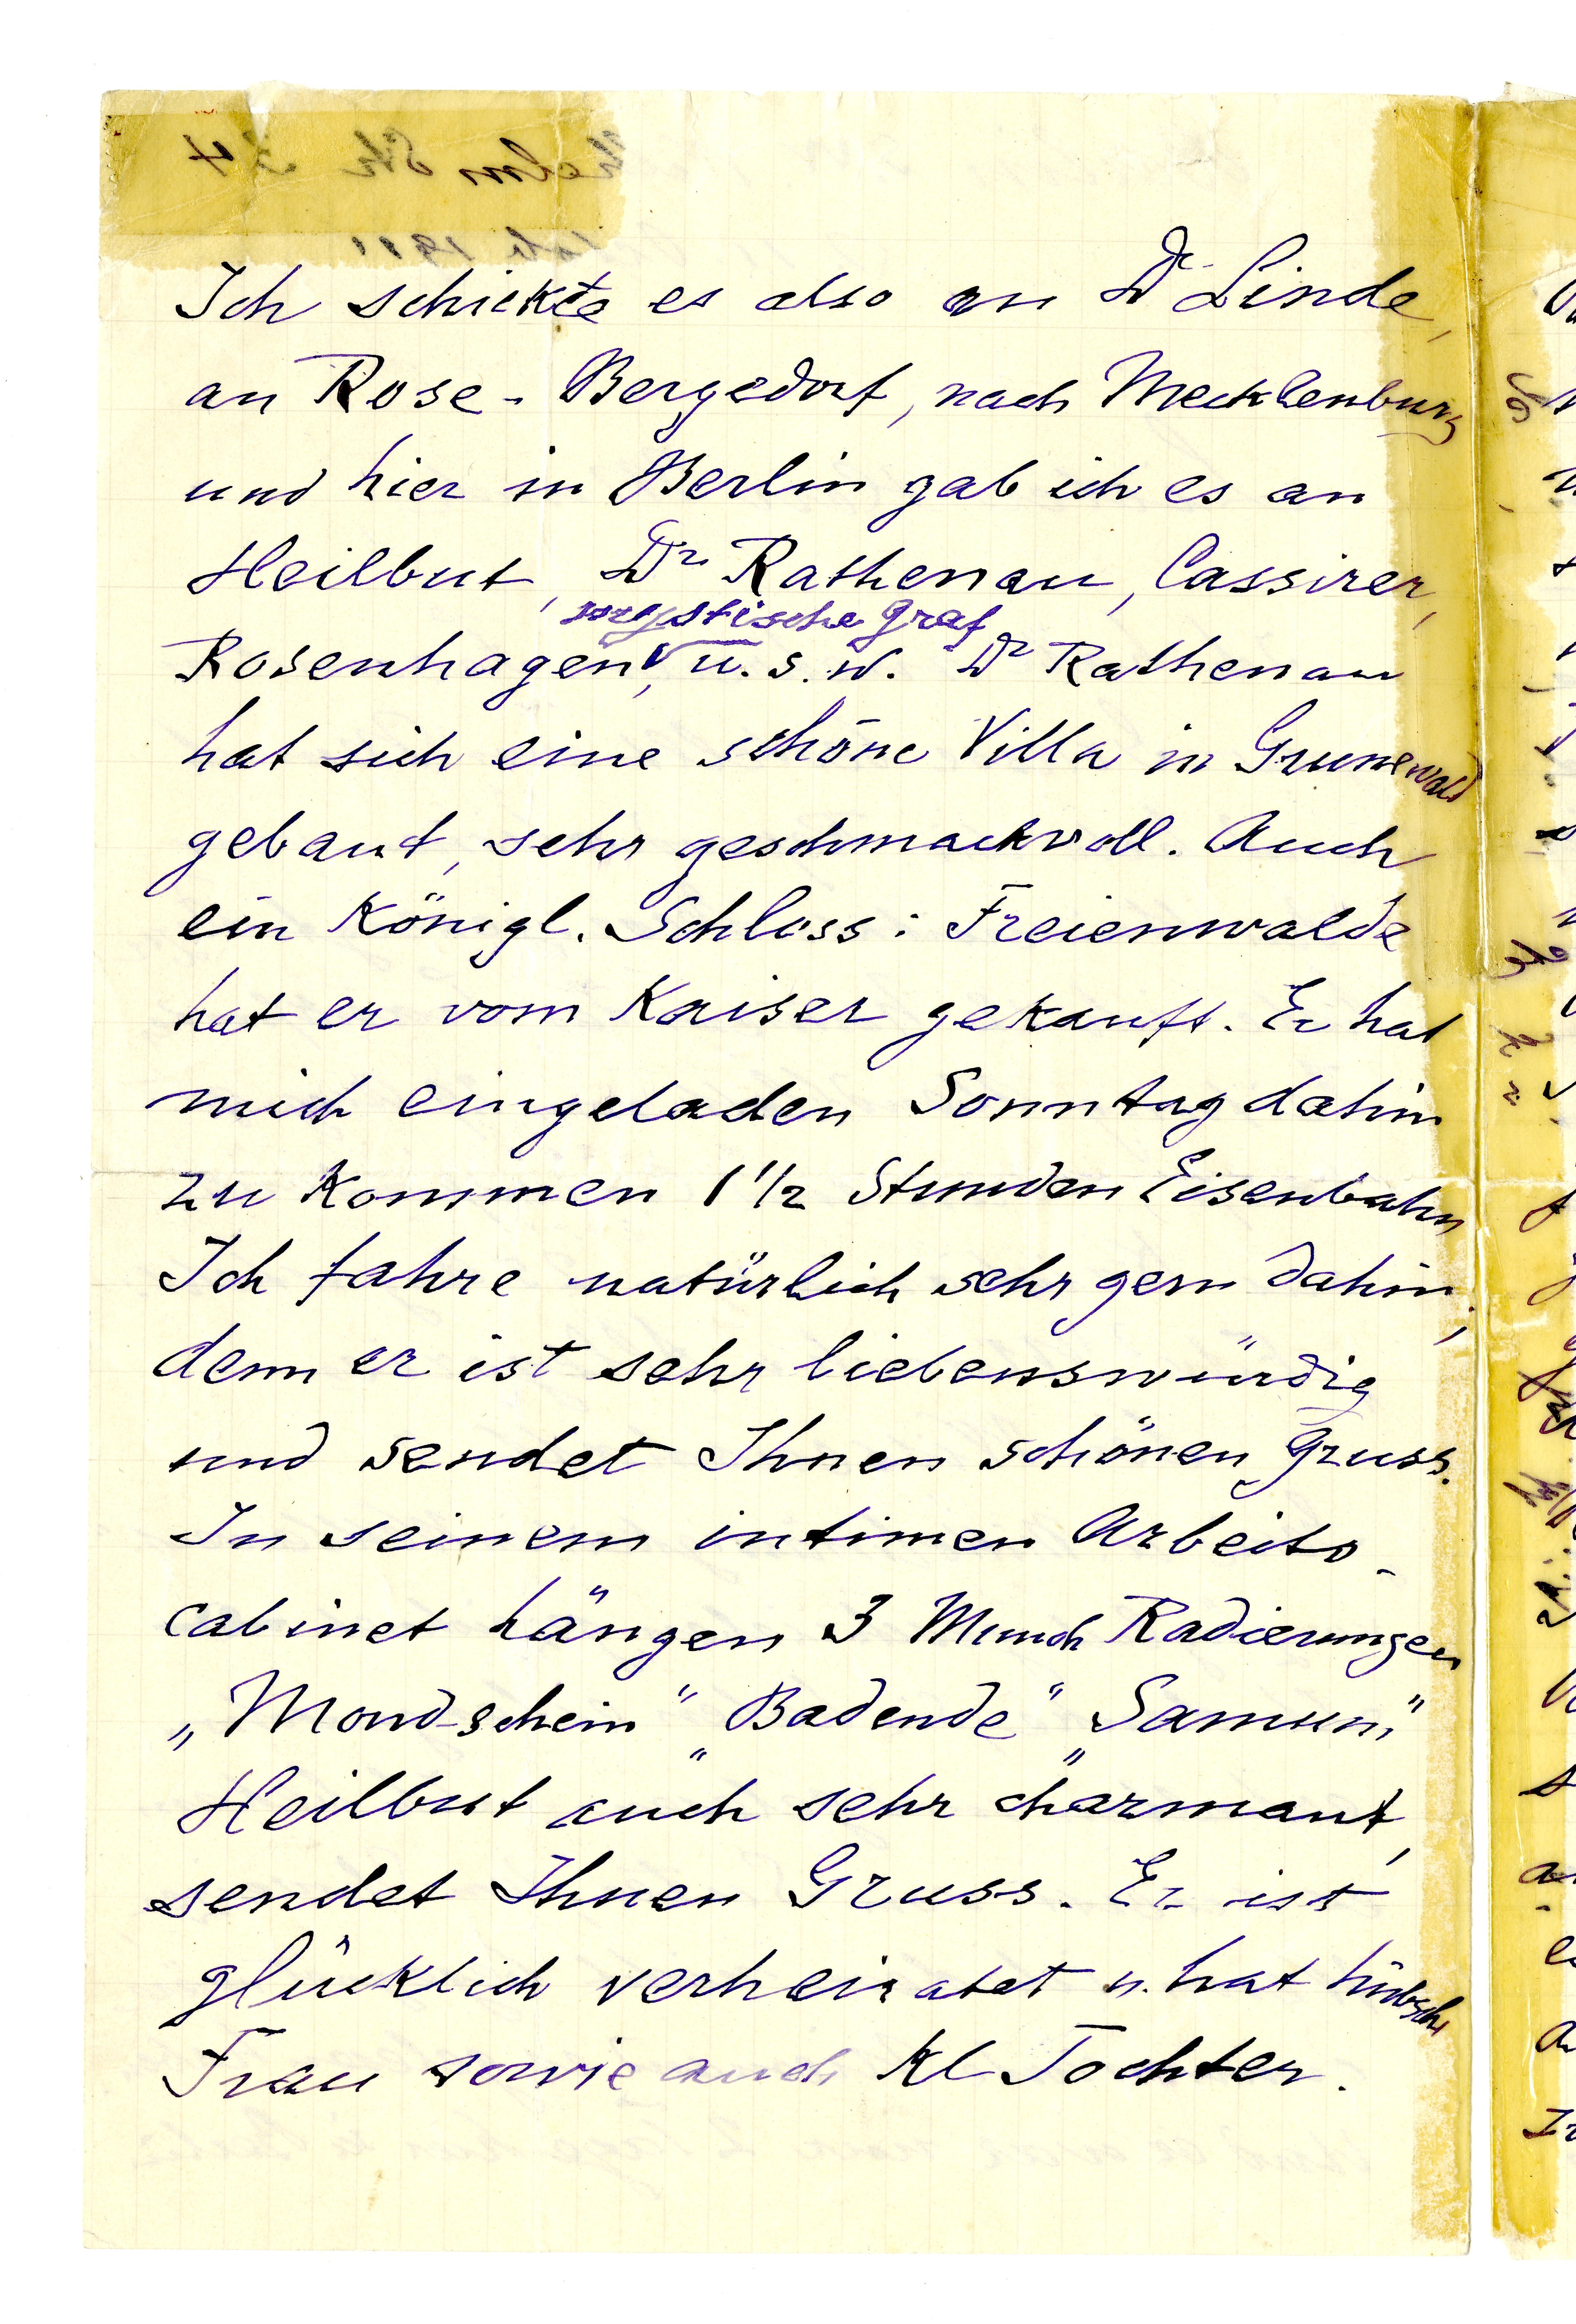 Ich schickte es also an Dr Linde,
an Rose-Bergedorf, nach Mecklenburg
und hier in Berlin gab ich es an
Heilbut, Dr Rathenau, Cassirer,
mystische Graf
Rosenhagen, u.s.w. Dr Rathenau
hat sich eine schöne Villa in Grunewald
gebaut, sehr geschmackvoll. Auch
ein Königl. Schloss: Freienwalde
hat er vom Kaiser gekauft. Er hat
mich eingeladen Sonntag dahin
zu kommen 1 1/2 Stunden Eisenbahn
Ich fahre natürlich sehr gern dahin,
denn er ist sehr liebenswürdig
und sendet Ihnen schönen Gruss.
In seinem intimen Arbeits-
cabinet hängen 3 Munch Radierungen
„Mondschein" „Badende" „Samum"
Heilbut auch sehr charmant,
sendet Ihnen Gruss. Er ist
glücklich verheiratet u. hat hübsche
Frau sowie auch Kl Tochter.